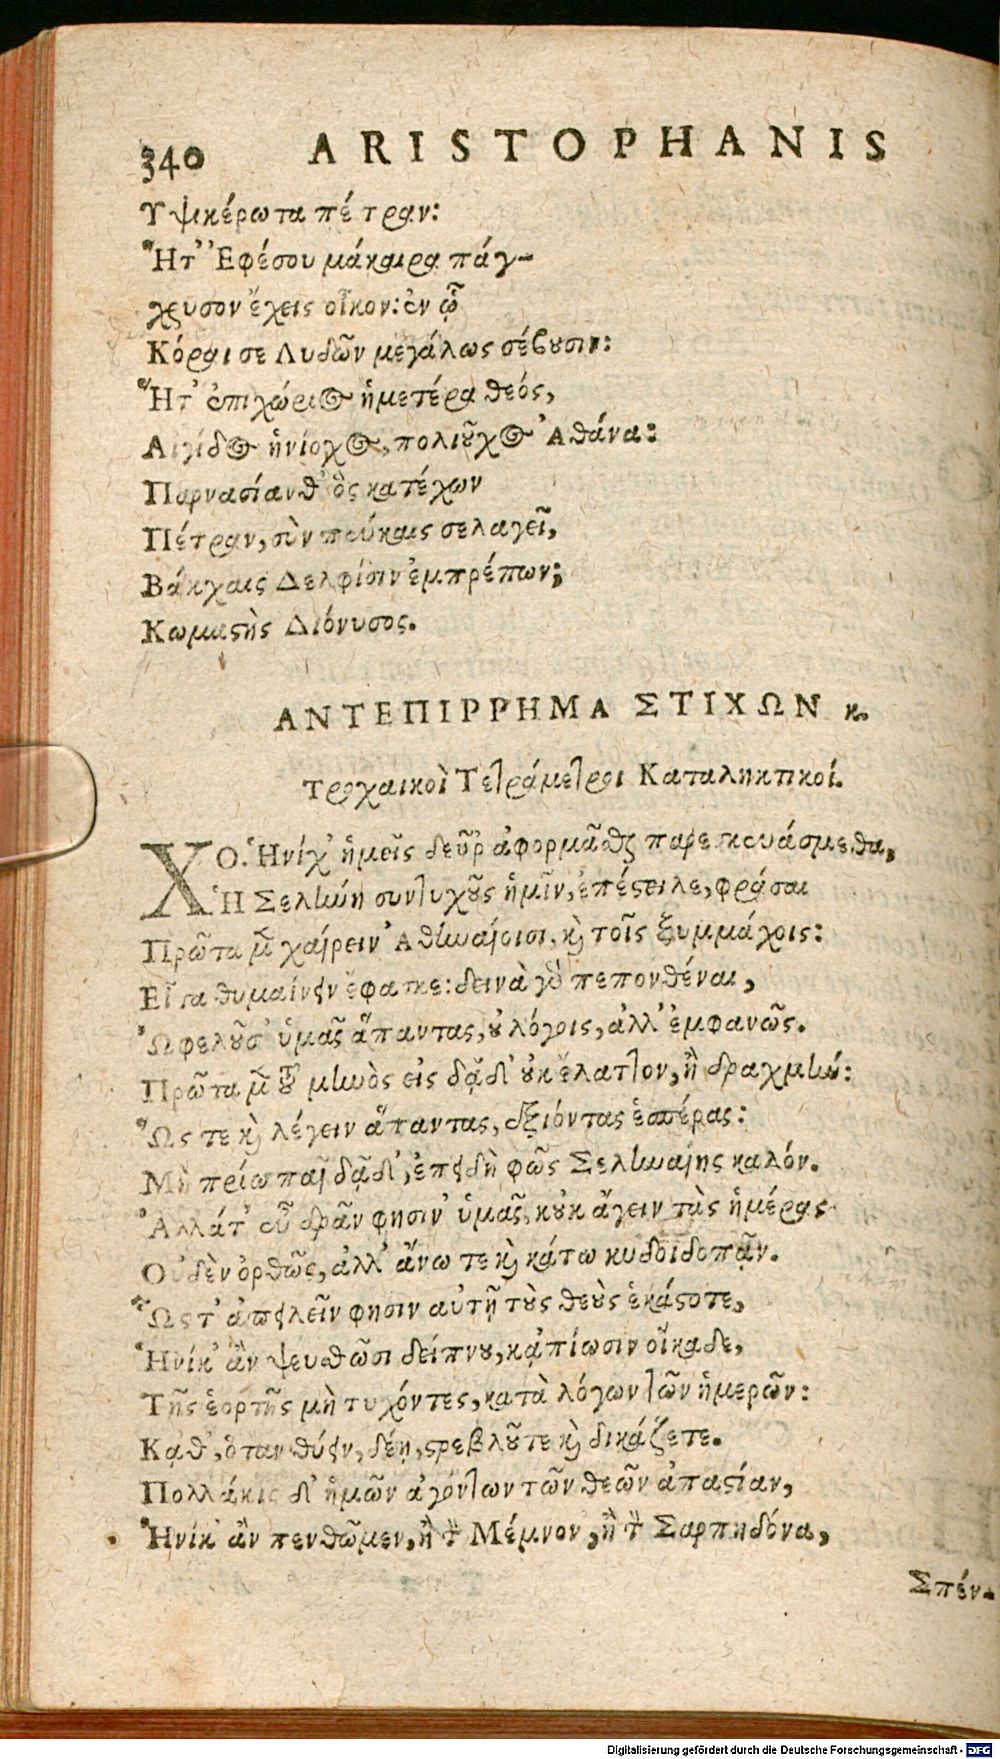 340 ARISTOPHANIS
Ὑψικέρωτα πέτραν:
Ἥτ' Ἐφέσου μάκαιρα πάγ-
χρυσον ἔχεις οἶκον: ἐν ᾧ
Κόραι σε Λυδῶν μεγάλως σέβουσιν:
Ἥτ' ἐπιχώριος ἡμετέρα θεός,
Αἰγίδος ἡνίοχος, πολιοῦχος Ἀθάνα:
Παρνασίαν θ' ὃς κατέχων
Πέτραν, σὺν πεύκαις σελαγεῖ,
Βάκχαις Δελφίσιν ἐμπρέπων;
Κωμαςὴς Διόνυσος.
ΑΝΤΕΠΙΡΡΗΜΑ ΣΤΙΧΩΝ κ.
Τροχαικοὶ Τετράμετροι Καταληκτικοί.
ΧΟ. Ἡνίχ' ἡμεῖς δεῦρ' ἀφορμᾶσθαι παρεσκευάσμεθα,
Ἡ Σελήνη συντυχοῦς' ἡμῖν, ἐπέςειλε, φράσαι
Πρῶτα μὲν χαίρειν Ἀθηναίοισι, καὶ τοῖς ξυμμάχοις:
Εἶτα θυμαίνειν ἔφασκε: δεινὰ γὰρ πεπονθέναι,
Ὠφελοῦσ' ὑμᾶς ἅπαντας, οὐ λόγοις, ἀλλ' ἐμφανῶς.
Πρῶτα μὲν τοῦ μηνὸς εἰς δᾷδ' οὐκ ἔλαττον, ἢ δραχμήν:
Ὥς τε καὶ λέγειν ἅπαντας, ἐξιόντας ἑσπέρας:
Μὴ πρίω παῖ δᾷδ', ἐπειδὴ φῶς Σεληναίης καλόν.
Ἀλλάτ' εὖ δρᾶν φησιν' ὑμᾶς, κοὐκ ἄγειν τὰς ἡμέρας
Οὐδὲν ὀρθῶς, ἀλλ' ἄνω τε καὶ κάτω κυδοιδοπᾷν.
Ὥς τ' ἀπειλεῖν φησιν αὐτῇ τοὺς θεοὺς ἑκάςοτε,
Ἡνίκ' ἂν ψευσθῶσι δείπνου, κἀπίωσιν οἴκαδε,
Τῆς ἑορτῆς μὴ τυχόντες, κατὰ λόγων τῶν ἡμερῶν:
Κᾆθ', ὅταν θύειν, δέῃ, ςρεβλοῦτε καὶ δικάζετε.
Πολλάκις δ' ἡμῶν ἀγόντων τῶν θεῶν ἀπαςίαν,
Ἡνίκ' ἂν πενθῶμεν, ἢ τὸν Μέμνον', ἢ τὸν Σαρπηδόνα,
Σπέν-
Digitalisierung gefördert durch die Deutsche Forschungsgemeinschaft - DFG